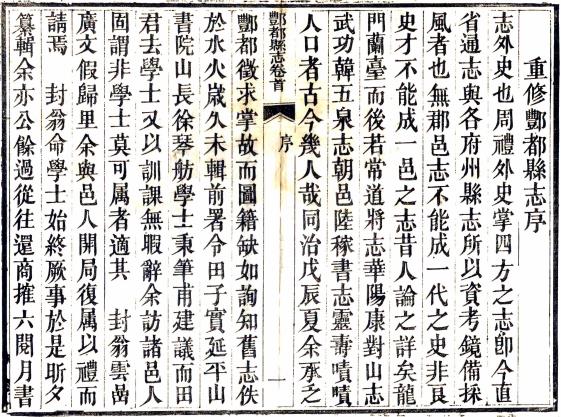 重修酆都縣志序
志外史也周禮外史掌四方之志卽今直
省通志與各府州縣志所以資考鏡備採
風者也無郡邑志不能成一代之史非良
史才不能成一邑之志昔人論之詳矣龍
門蘭臺而後若常道將志華陽康對山志
武功韓五泉志朝邑陸稼書志靈壽嘖嘖
人口者古今幾人哉同治戊辰夏余承乏
酆都縣志卷首
序
一
酆都徵求掌故而圖籍缺如詢知舊志佚
於水火歲久未輯前署令田子實延平山
書院山長徐琴舫學士秉筆甫建議而田
君去學士又以訓課無暇辭余訪諸邑人
固謂非學士莫可属者適其 封翁雲嵒
廣文假歸里余與邑人開局復属以禮而
請焉 封翁命學士始終厥事於是昕夕
纂輯余亦公餘過從往還商搉六閱月書